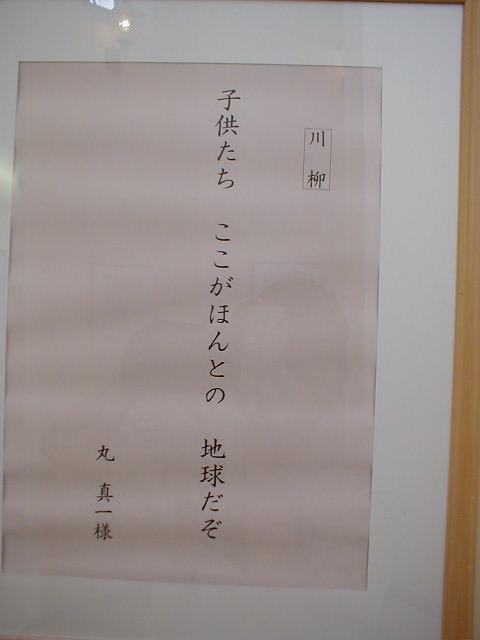 川柳
子供たち ここがほんとの 地球だぞ
丸 真一様